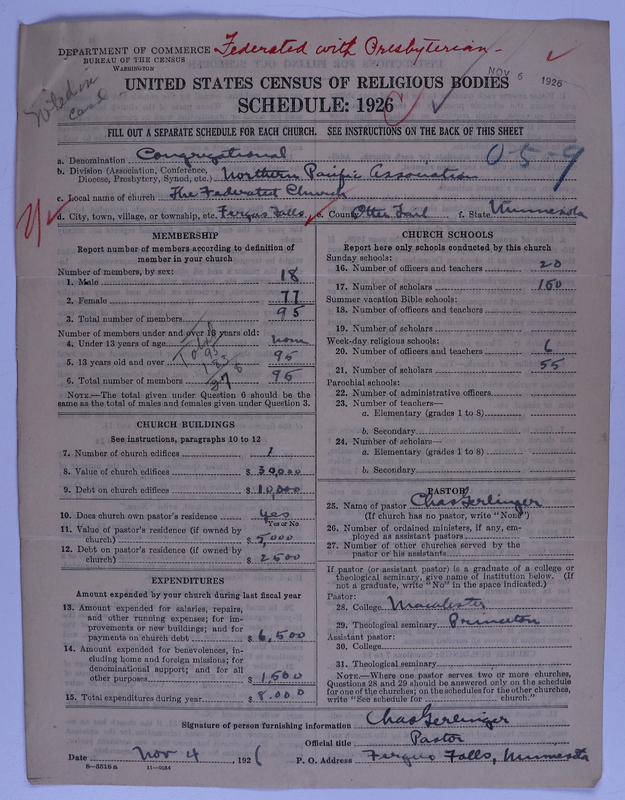 DEPARTMENT OF COMMERCE Federated with Presbyterian-
BUREAU OF THE CENSUS
WASHINGTON
NOV 6 1926
Noted on card
UNITED STATES CENSUS OF RELIGIOUS BODIES
SCHEDULE: 1926
FILL OUT A SEPARATE SCHEDULE FOR EACH CHURCH. SEE INSTRUCTIONS ON THE BACK OF THIS SHEET
a. Denomination Congregational 05-9
b. Division (Association, Conference, Diocese, Presbytery, Synod, etc.) Northern Pacific Association
c. Local name of church The Federated Church
d. City, town, village, or township, etc. Fergus Falls e. County Otter Tail f. State Minnesota
MEMBERSHIP
Report number of members according to definition of
member in your church
Number of members, by sex:
1. Male 18
2. Female 77
3. Total number of members 95
Number of members under and over 13 years old:
4. Under 13 years of age none
5. 13 years old and over 95
6. Total number of members 95
Total
95
NOTE.—The total given under Question 6 should be the
same as the total of males and females given under Question 3.
CHURCH BUILDINGS
See instructions, paragraphs 10 to 12
7. Number of church edifices 1
8. Value of church edifices $ 30,000
9. Debt on church edifices $ 10,000
10. Does church own pastor's residence yes
Yes or No
11. Value of pastor's residence (if owned by
church) $ 5,000
12. Debt on pastor's residence (if owned by
church) $ 2500
EXPENDITURES
Amount expended by your church during last fiscal year
13. Amount expended for salaries, repairs,
and other running expenses; for im-
provements or new buildings; and for
payments on church debt $ 6,500
14. Amount expended for benevolences, in-
cluding home and foreign missions; for
denominational support; and for all
other purposes $ 1,500
15. Total expenditures during year $ 8,000
CHURCH SCHOOLS
Report here only schools conducted by this church
Sunday schools:
16. Number of officers and teachers 20
17. Number of scholars 160
Summer vacation Bible schools:
18. Number of officers and teachers
19. Number of scholars
Week-day religious schools:
20. Number of officers and teachers 6
21. Number of scholars 55
Parochial schools:
22. Number of administrative officers
23. Number of teachers—
a. Elementary (grades 1 to 8)
b. Secondary
24. Number of scholars—
a. Elementary (grades 1 to 8)
b. Secondary
PASTOR
25. Name of pastor Chas Gerlinger
(If church has no pastor, write "None")
26. Number of ordained ministers, if any, em-
ployed as assistant pastors
27. Number of other churches served by the
pastor or his assistants
If pastor (or assistant pastor) is a graduate of a college or
theological seminary, give name of institution below. (If
not a graduate, write "No" in the space indicated.)
Pastor:
28. College Macalester
29. Theological seminary Princeton
Assistant pastor:
30. College
31. Theological seminary
NOTE.—Where one pastor serves two or more churches,
Questions 28 and 29 should be answered only on the schedule
for one of the churches; on the schedules for the other churches,
write "See schedule for church."
Signature of person furnishing information Chas Gerlinger
Official title Pastor
Date Nov 4, 1926 P. O. Address Fergus Falls, Minnesota
8-5516a 11-9034